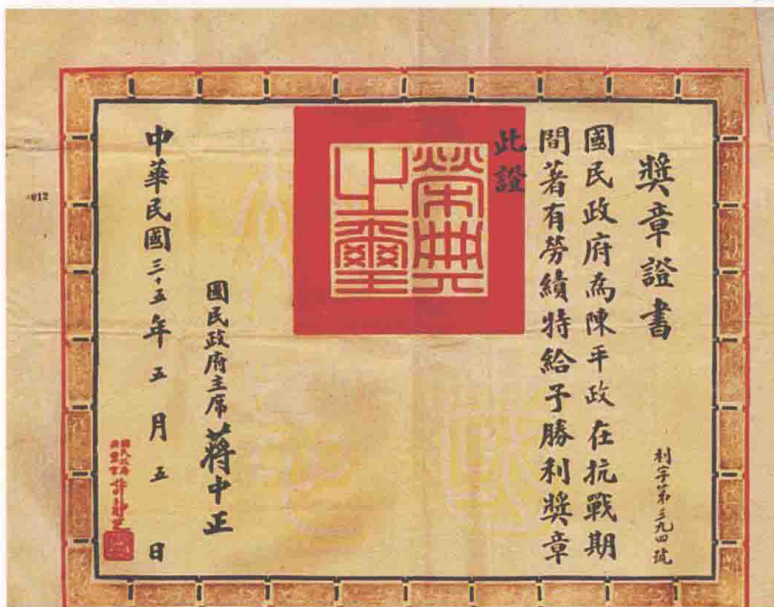 獎章證書
利字第三九四號
國民政府為陳平政在抗戰期
間著有勞績特給予勝利獎章
此證
榮典之璽
國民政府主席蔣中正
中華民國三十五年五月五日
國民政府
典璽官
012